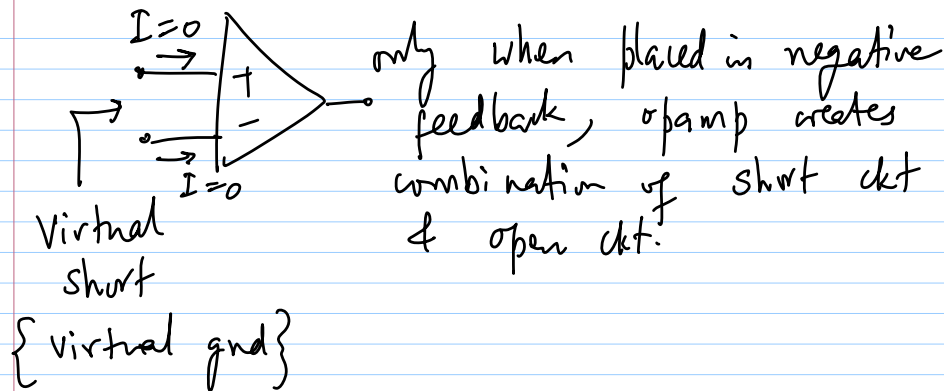 I=0
+
-
I=0
Virtual
short
{ virtual gnd}
only when placed in negative
feedback, opamp creates
combination of short ckt
& open ckt.